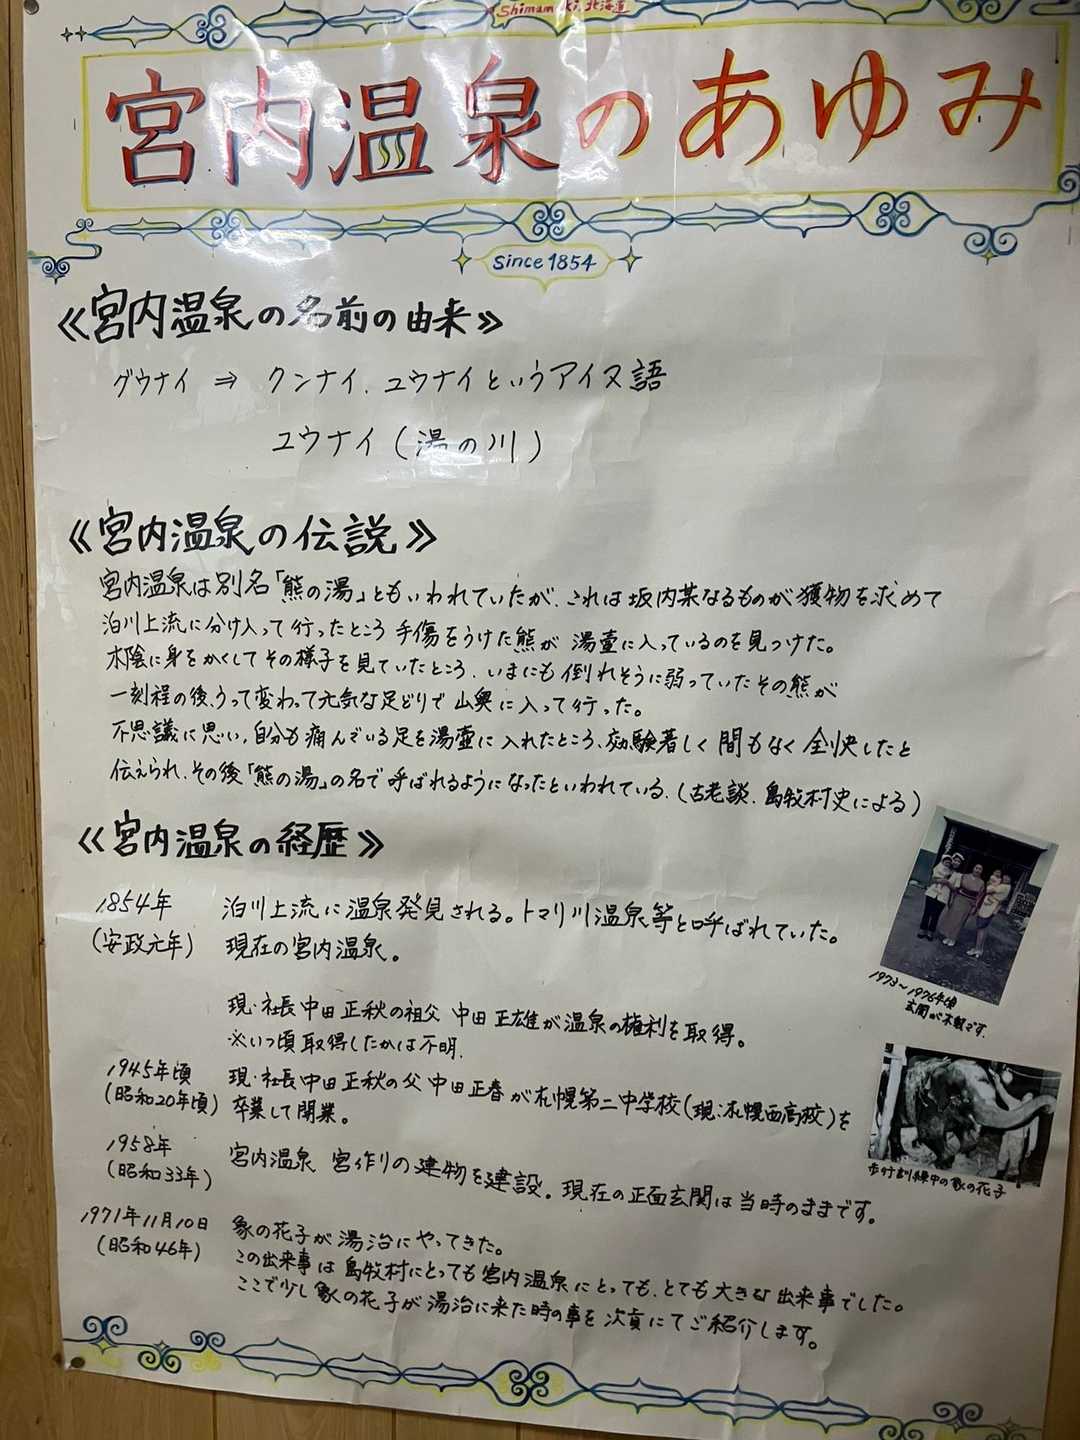 Shimamaki, 北海道
宮内温泉のあゆみ
Since 1854
《宮内温泉の名前の由来》
グウナイ ⇒ クンナイ、ユウナイというアイヌ語
ユウナイ(湯の川)
《宮内温泉の伝説》
宮内温泉は別名「熊の湯」ともいわれていたが、これは坂内某なるものが獲物を求めて
泊川上流に分け入って行ったところ手傷をうけた熊が湯壷に入っているのを見つけた。
木陰に身をかくしてその様子を見ていたところ、いまにも倒れそうに弱っていたその熊が
一刻程の後、うって変わって元気な足どりで山奥に入って行った。
不思議に思い、自分も痛んでいる足を湯壷に入れたところ、効験著しく間もなく全快したと
伝えられ、その後「熊の湯」の名で呼ばれるようになったといわれている、(古老談、島牧村史による)
《宮内温泉の経歴》
1854年 泊川上流に温泉発見される。トマリ川温泉等と呼ばれていた。
(安政元年) 現在の宮内温泉。
現・社長中田正秋の祖父 中田正雄が温泉の権利を取得。
※いつ頃取得したかは不明.
1945年頃 現・社長中田正秋の父 中田正春が札幌第二中学校(現:札幌西高校)を
(昭和20年頃) 卒業して開業。
1958年 宮内温泉 宮作りの建物を建設。現在の正面玄関は当時のままです。
(昭和33年)
1971年11月10日 象の花子が湯治にやってきた。
(昭和46年) この出来事は島牧村にとっても宮内温泉にとっても、とても大きな出来事でした。
ここで少し象の花子が湯治に来た時の事を次頁にてご紹介します。
1973〜1976年頃
玄関が木製です.
歩行訓練中の象の花子